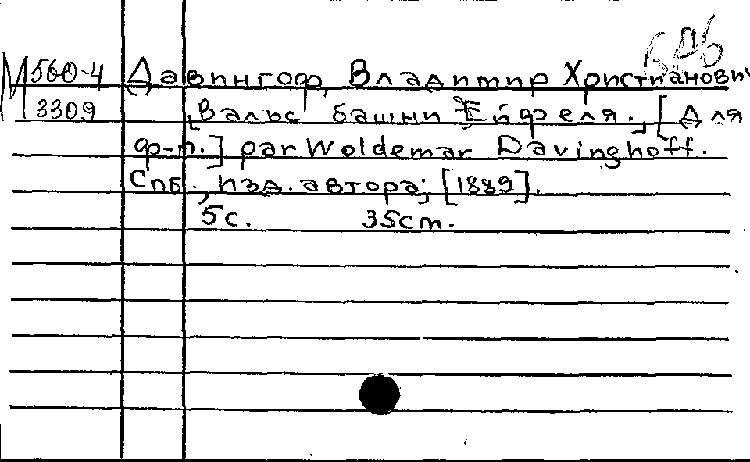 М 560-4 Давингоф, Владимир Христианович
3309 Вальс башни Эйфеля. [Для
ф-п.] par Woldemar Davinghoff.
Спб., изд. автора, [1889].
5с. 35см.